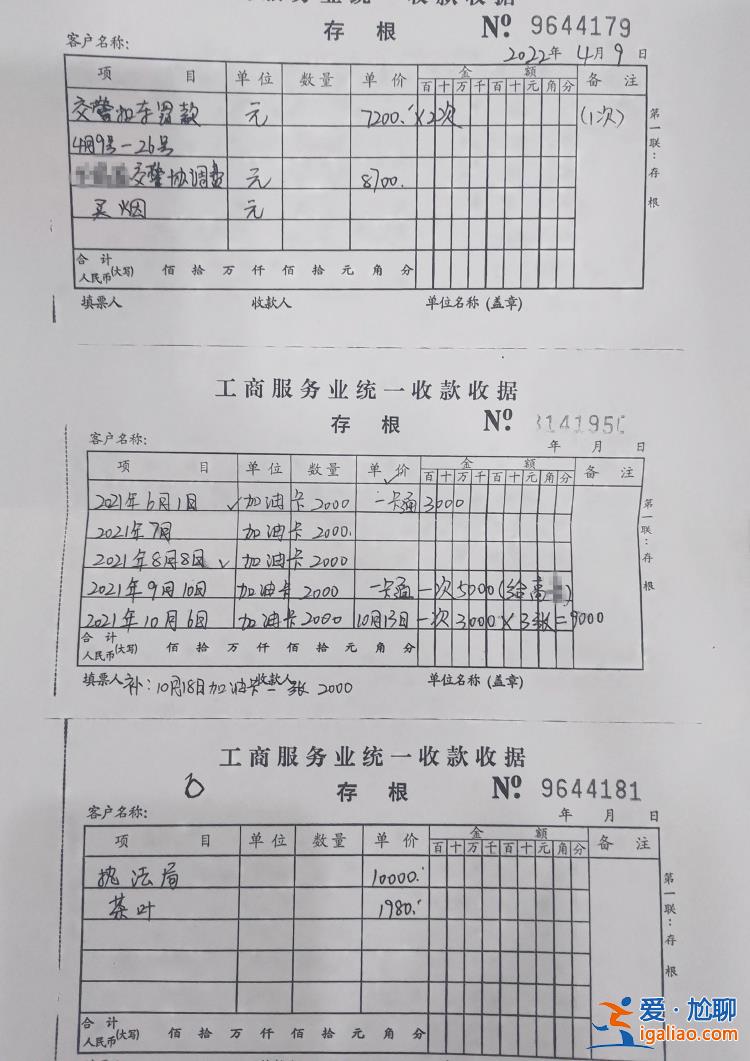 工商服务业统一收款收据
存 根 Nº 9644179
客户名称: 2022年 4月 9日
项 目 单 位 数 量 单 价 金 额 备 注
百 十 万 千 百 十 元 角 分
交警扣车罚款 元 7200. ×2次 (1次)
4月9号-26号
交警协调费 元 8700.
买烟 元
合 计
人民币(大写) 佰 拾 万 仟 佰 拾 元 角 分
填票人 收款人 单位名称(盖章)
第一联:存根
工商服务业统一收款收据
存 根 Nº 3141950
客户名称: 年 月 日
项 目 单 位 数 量 单 价 金 额 备 注
百 十 万 千 百 十 元 角 分
2021年6月1日 ✓ 加油卡 2000 一卡通 3000
2021年7月 加油卡 2000.
2021年8月8日 ✓ 加油卡 2000
2021年9月10日 加油卡 2000 一卡通 一次 5000 (给高
2021年10月6日 加油卡 2000 10月13日 一次 3000 × 3张 = 9000
合 计
人民币(大写) 佰 拾 万 仟 佰 拾 元 角 分
填票人 收款人 单位名称(盖章)
补: 10月18日加油卡一张 2000
第一联:存根
工商服务业统一收款收据
存 根 Nº 9644181
客户名称: 年 月 日
项 目 单 位 数 量 单 价 金 额 备 注
百 十 万 千 百 十 元 角 分
执法局 10000.
茶叶 1980.
合 计
人民币(大写) 佰 拾 万 仟 佰 拾 元 角 分
第一联:存根
爱·尬聊
igaliao.com